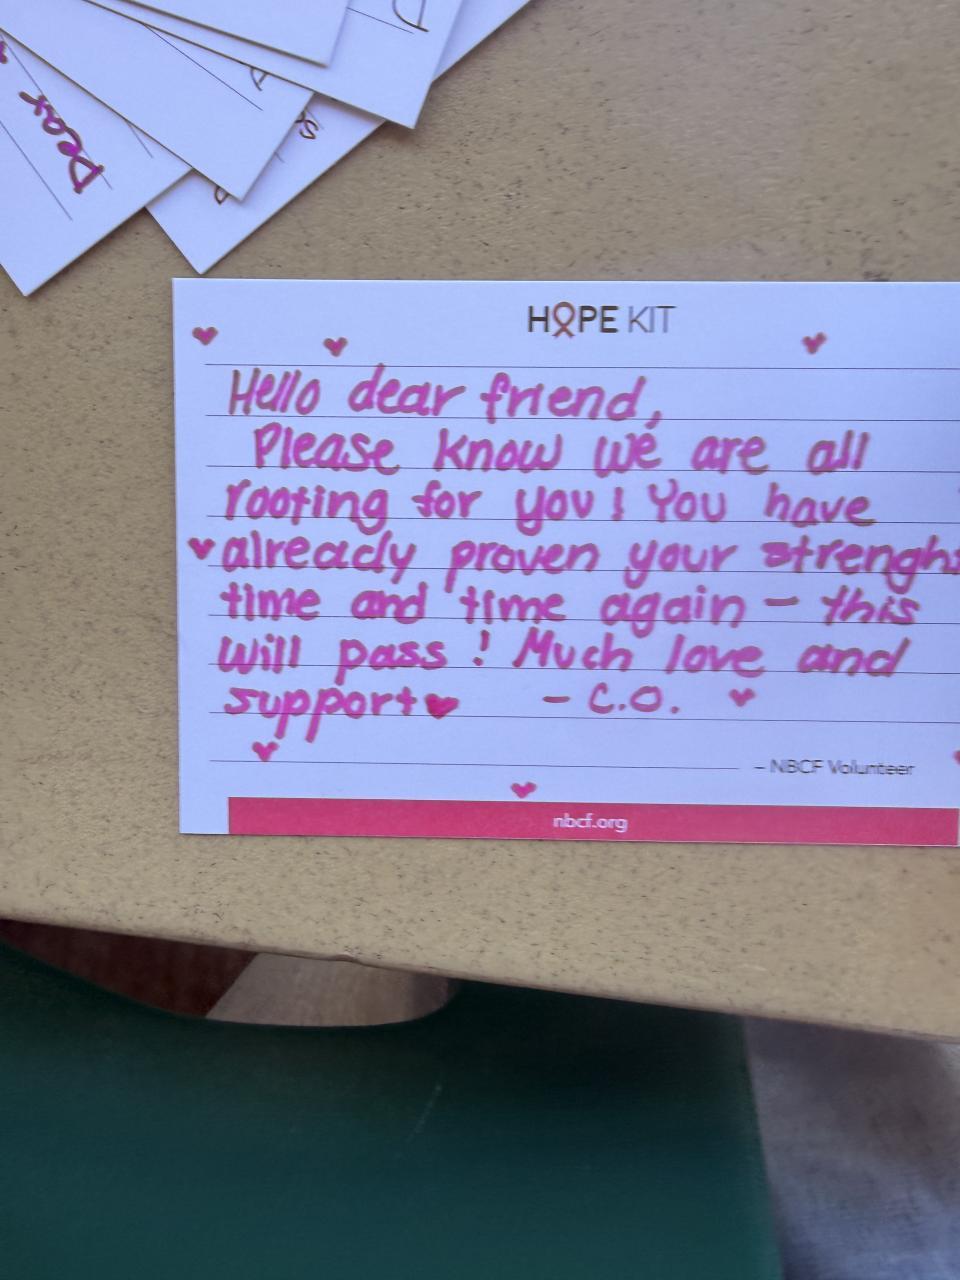 Dear
HOPE KIT
Hello dear friend,
Please know we are all
rooting for you! You have
already proven your strenght
time and time again – this
will pass! Much love and
support♥ – C.O.
– NBCF Volunteer
nbcf.org